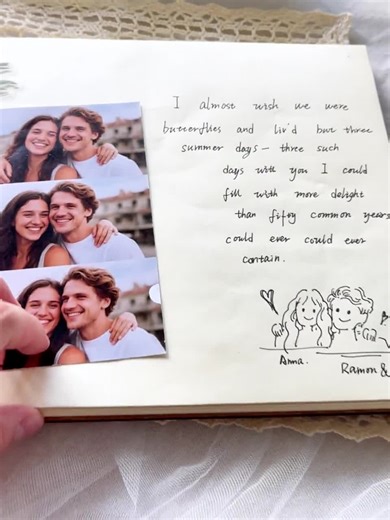 I almost wish we were
butterflies and liv'd but three
summer days - three such
days with you I could
fill with more delight
than fifty common years
could ever could ever
contain.
Anna.
Ramon &